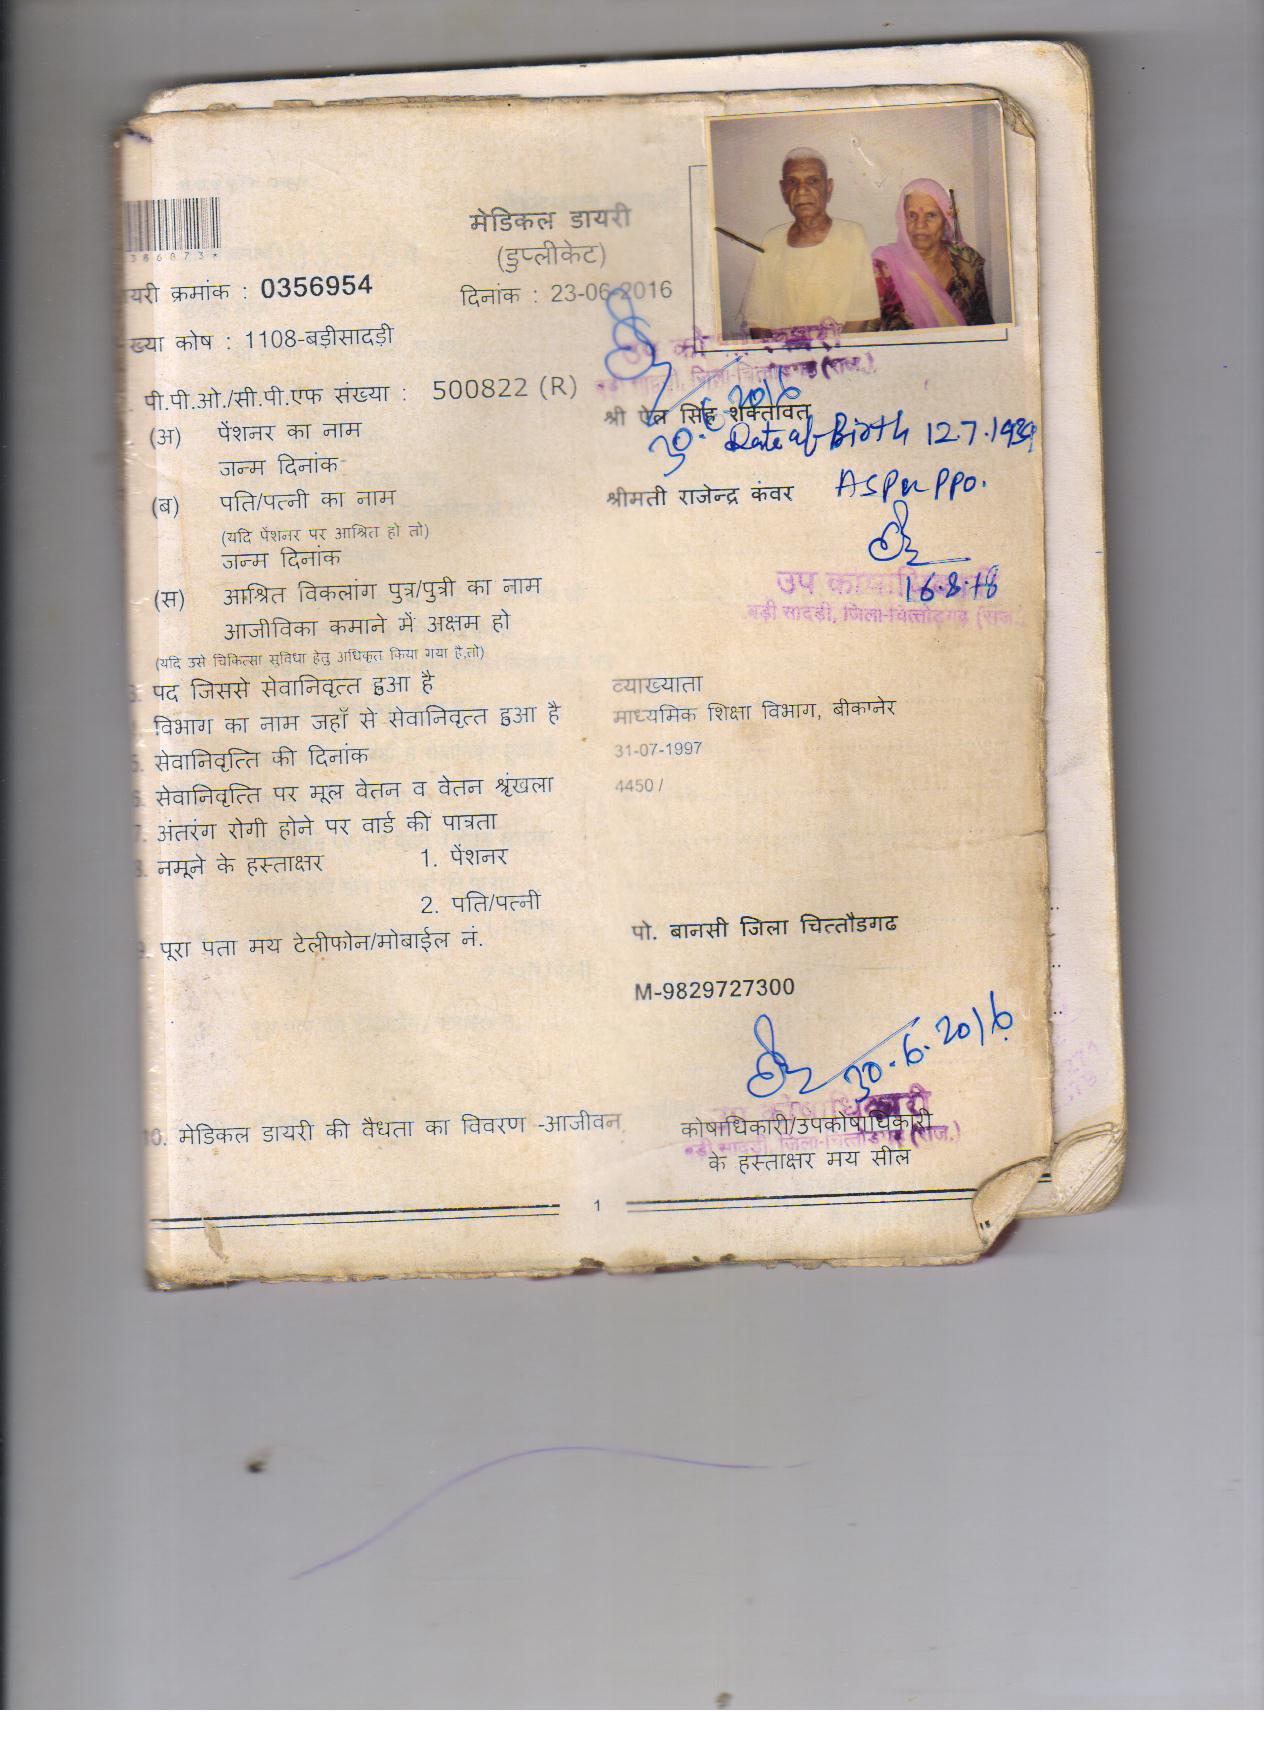 मेडिकल डायरी
(डुप्लीकेट)
यरी क्रमांक : 0356954
दिनांक : 23-06-2016
ख्या कोष : 1108-बड़ीसादड़ी
पी.पी.ओ./सी.पी.एफ संख्या : 500822 (R)
उप को
बड़ी सादड़ी, जिला-चित्तौडगढ़ (राज.)
30.6.2016
(अ) पेंशनर का नाम श्री ऐल सिंह शक्तावत
जन्म दिनांक Date of Birth 12.7.1939
As per PPO.
(ब) पति/पत्नी का नाम श्रीमती राजेन्द्र कंवर
(यदि पेंशनर पर आश्रित हो तो)
जन्म दिनांक
16.8.18
(स) आश्रित विकलांग पुत्र/पुत्री का नाम
उप
बड़ी सादड़ी, जिला-चित्तौडगढ़ (राज
आजीविका कमाने में अक्षम हो
(यदि उसे चिकित्सा सुविधा हेतु अधिकृत किया गया है,तो)
पद जिससे सेवानिवृत्त हुआ है व्याख्याता
विभाग का नाम जहाँ से सेवानिवृत्त हुआ है माध्यमिक शिक्षा विभाग, बीकानेर
5. सेवानिवृत्ति की दिनांक 31-07-1997
6. सेवानिवृत्ति पर मूल वेतन व वेतन श्रृंखला 4450 /
7. अंतरंग रोगी होने पर वार्ड की पात्रता
8. नमूने के हस्ताक्षर 1. पेंशनर
2. पति/पत्नी
9. पूरा पता मय टेलीफोन/मोबाईल नं. पो. बानसी जिला चित्तौडगढ
M-9829727300
30.6.2016
उप कोषाधिकारी
बड़ी सादड़ी, जिला-चित्तौडगढ़ (राज.)
10. मेडिकल डायरी की वैधता का विवरण -आजीवन
कोषाधिकारी/उपकोषाधिकारी
के हस्ताक्षर मय सील
1